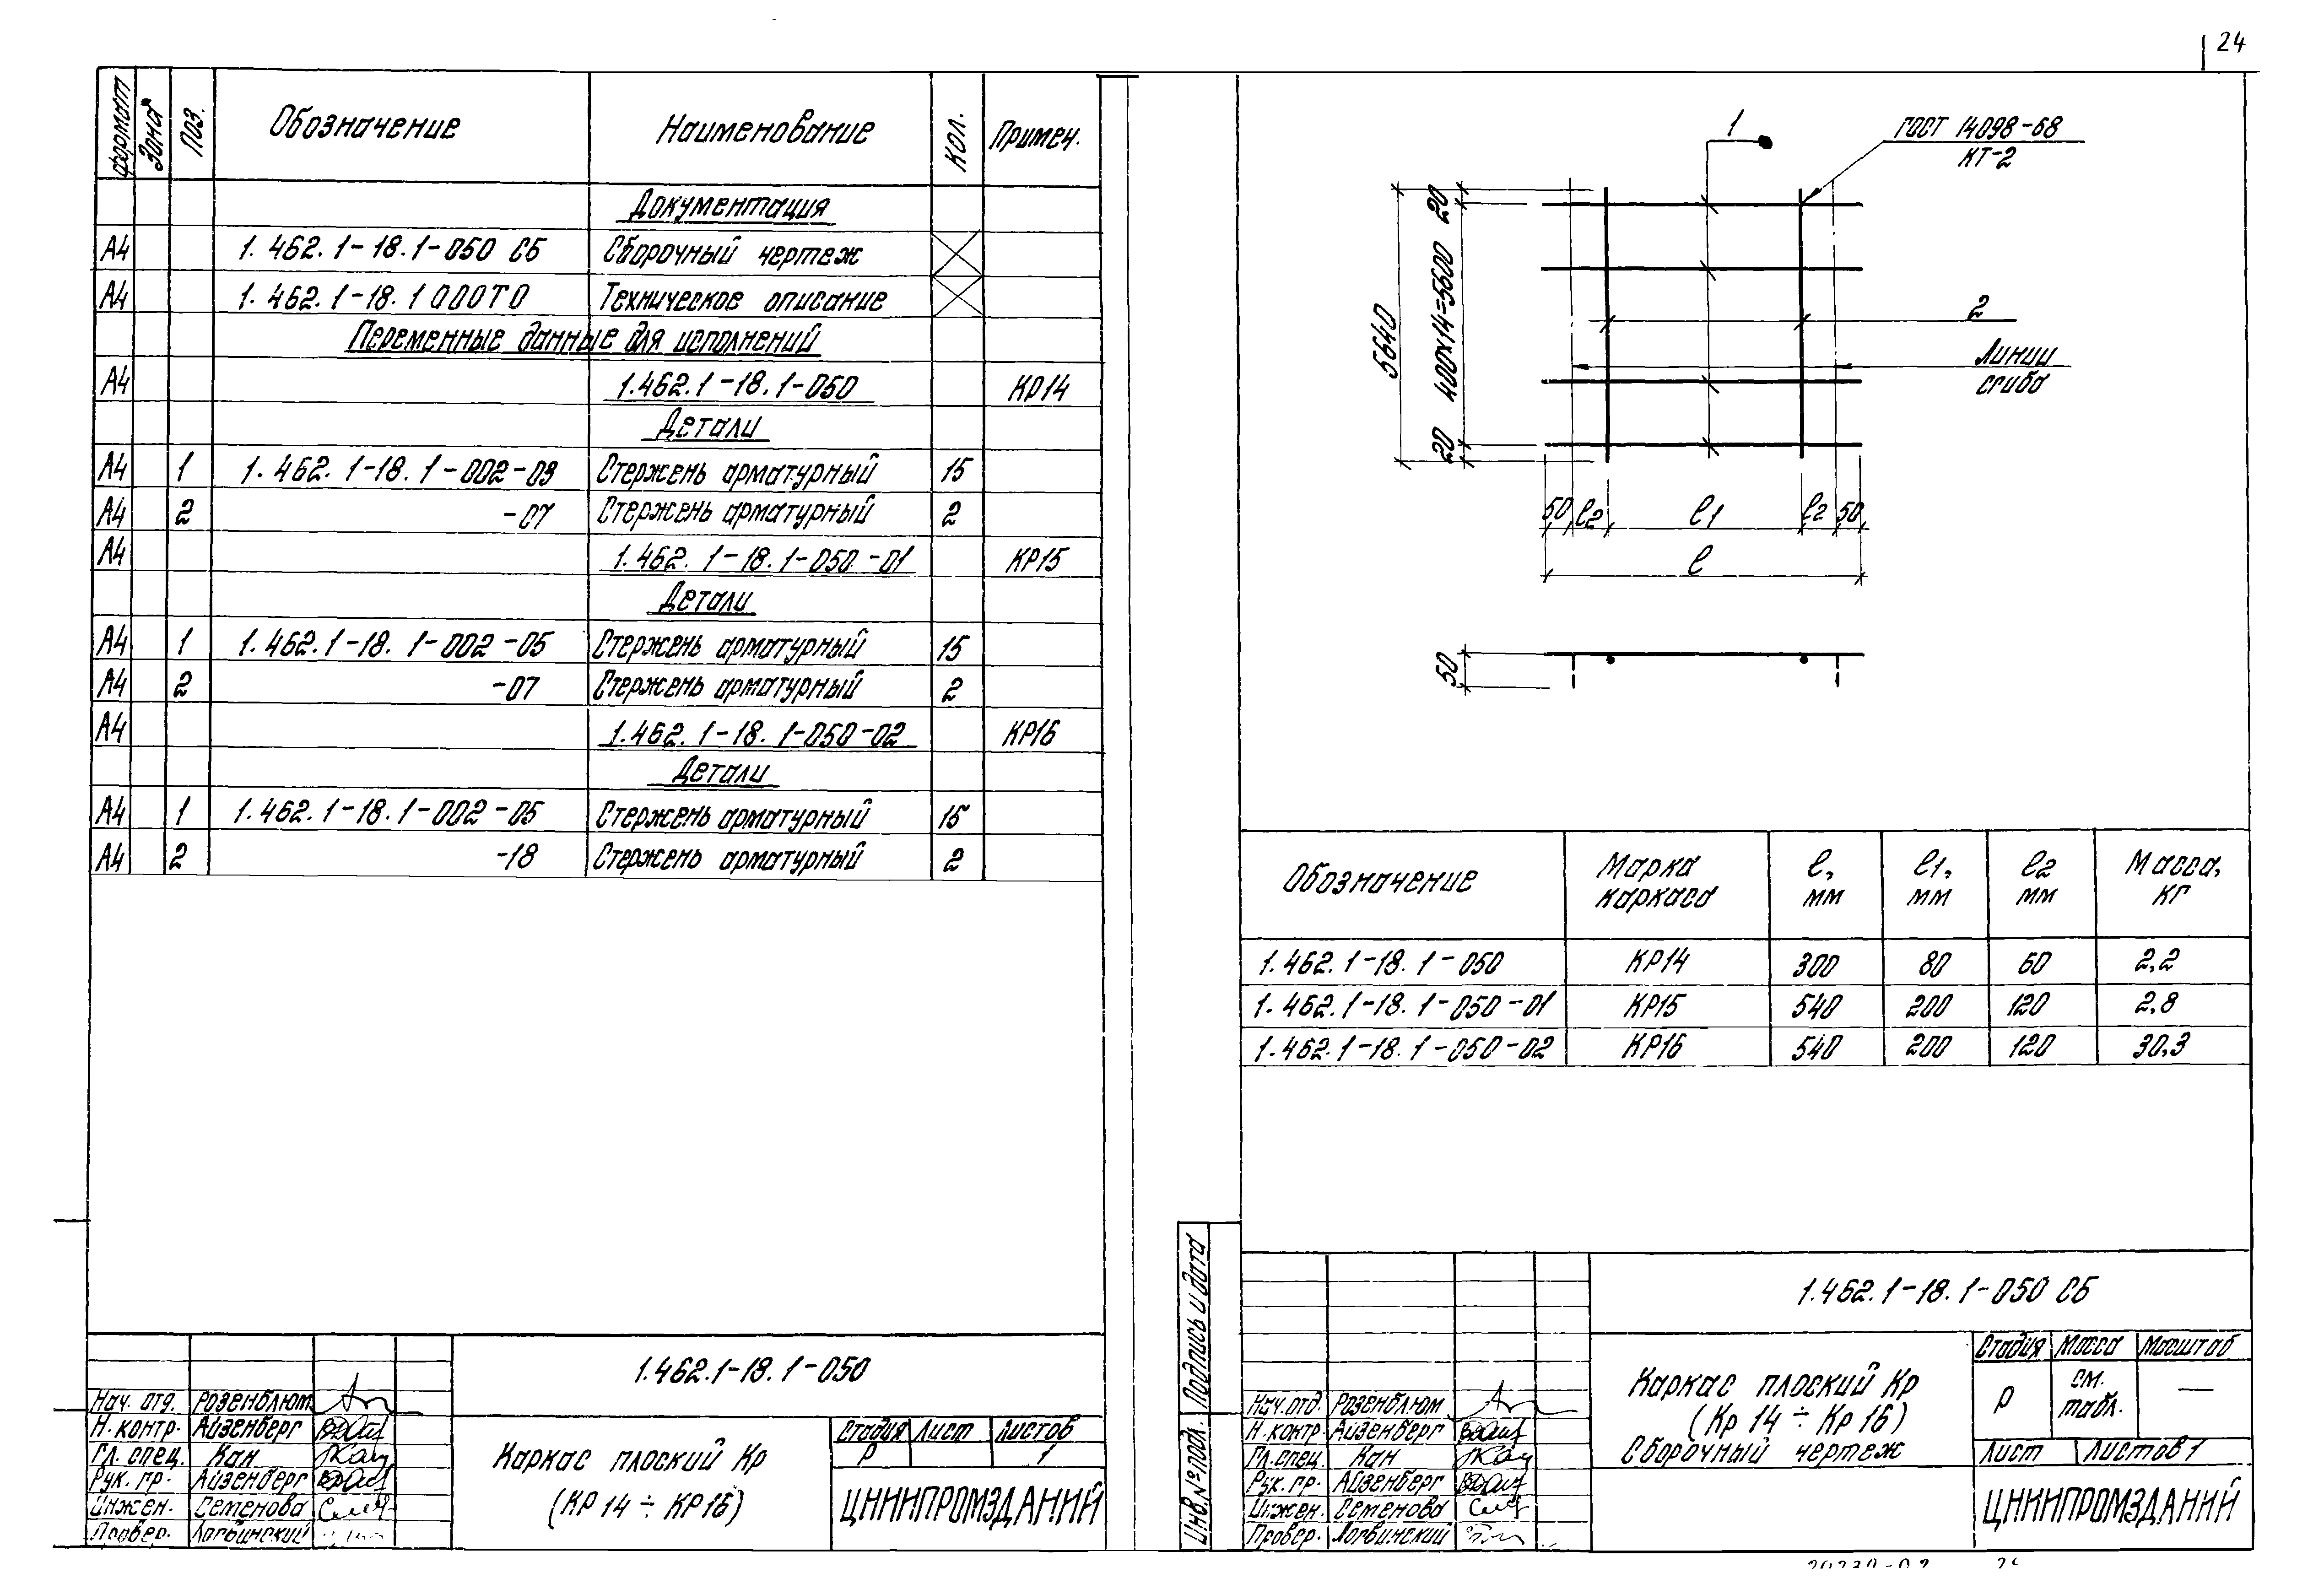 24
формат Зона Поз. Обозначение Наименование Кол. Примеч.
Документация
А4 1.462.1-18.1-050 СБ Сборочный чертеж
А4 1.462.1-18.1 000ТО Техническое описание
Переменные данные для исполнений
А4 1.462.1-18.1-050 КР14
Детали
А4 1 1.462.1-18.1-002-03 Стержень арматурный 15
А4 2 -07 Стержень арматурный 2
А4 1.462.1-18.1-050-01 КР15
Детали
А4 1 1.462.1-18.1-002-05 Стержень арматурный 15
А4 2 -07 Стержень арматурный 2
А4 1.462.1-18.1-050-02 КР16
Детали
А4 1 1.462.1-18.1-002-05 Стержень арматурный 15
А4 2 -18 Стержень арматурный 2
1.462.1-18.1-050
Нач. отд. Розенблюм
Н. контр. Айзенберг
Гл. спец. Кан
Рук. гр. Айзенберг
Инжен. Семенова
Провер. Логвинский
Каркас плоский Кр
(КР 14 ÷ КР 16)
Стадия Лист Листов
Р 1
ЦНИИПРОМЗДАНИЙ
1
ГОСТ 14098-68
КТ-2
20
400х14=5600
20
5640
2
Линии
сгиба
50 ℓ2 ℓ1 ℓ2 50
ℓ
50
Обозначение Марка каркаса ℓ, мм ℓ1, мм ℓ2 мм Масса, кг
1.462.1-18.1-050 КР14 300 80 60 2,2
1.462.1-18.1-050-01 КР15 540 200 120 2,8
1.462.1-18.1-050-02 КР16 540 200 120 30,3
Инв. № подл. Подпись и дата
1.462.1-18.1-050 СБ
Нач. отд. Розенблюм
Н. контр. Айзенберг
Гл. спец. Кан
Рук. гр. Айзенберг
Инжен. Семенова
Провер. Логвинский
Каркас плоский Кр
(Кр 14 ÷ Кр 16)
Сборочный чертеж
Стадия Масса Масштаб
Р см. табл. —
Лист Листов 1
ЦНИИПРОМЗДАНИЙ